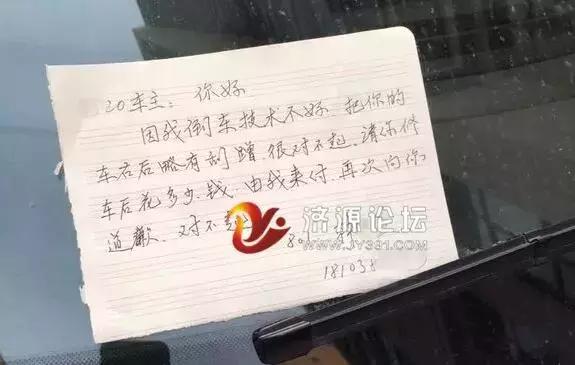 20车主：你好
因我倒车技术不好 把你的
车右后略有刮蹭 很对不起. 请你修
车后花多少.钱. 由我来付. 再次向你
道歉. 对不起
济源论坛
WWW.JY391.COM
18103